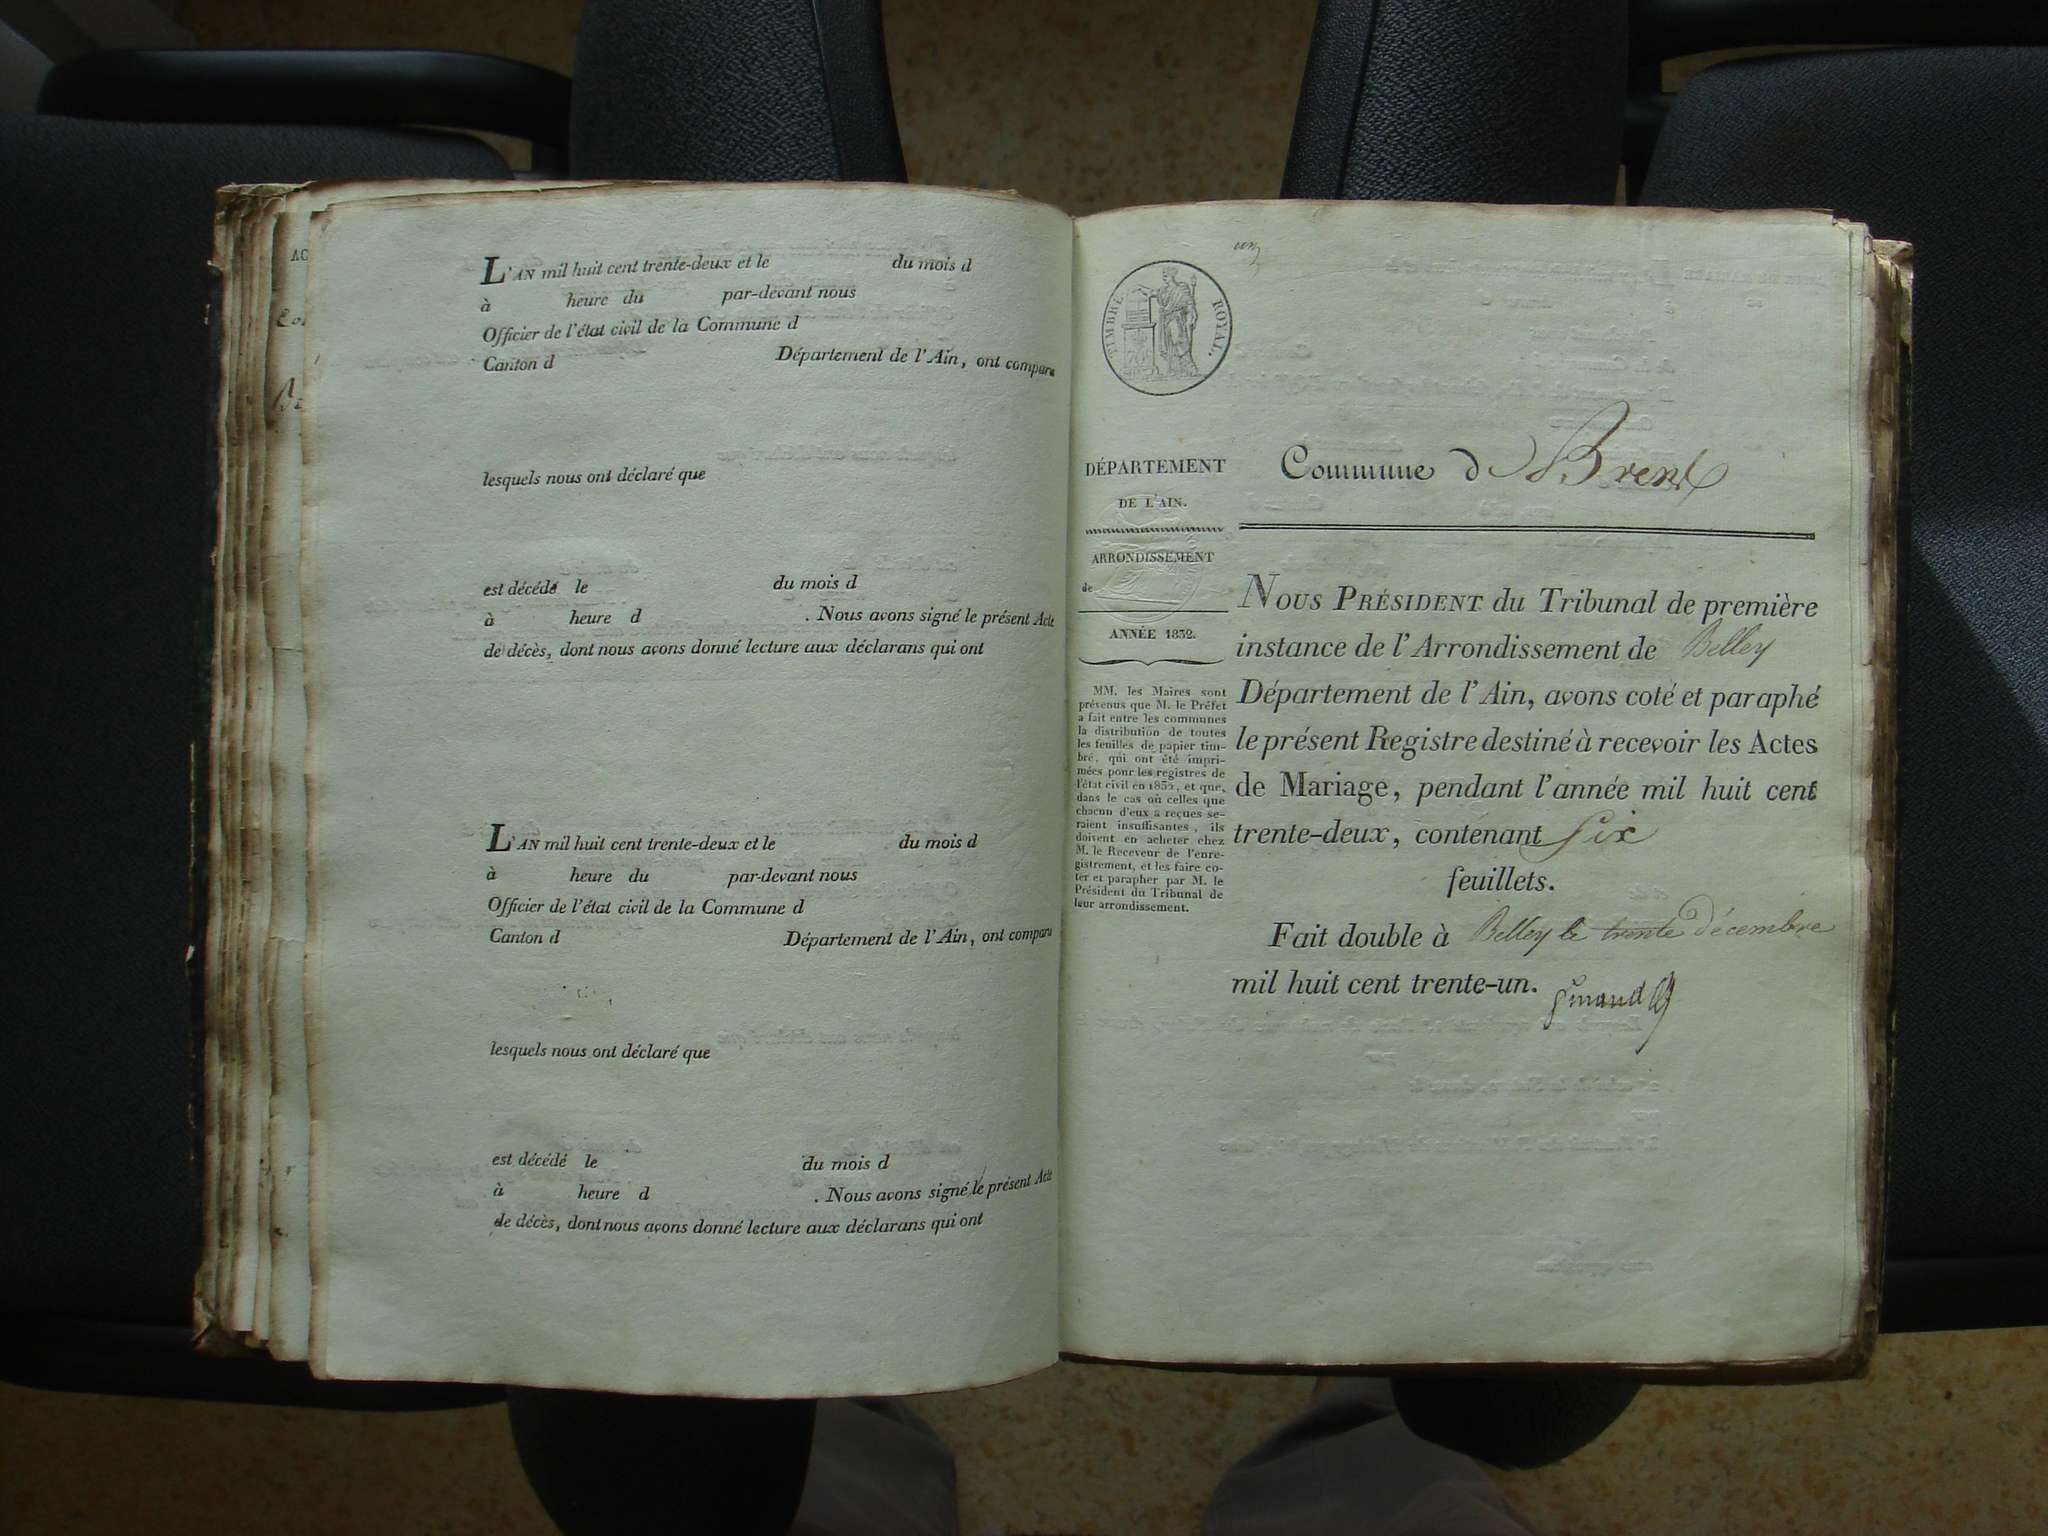 L'AN mil huit cent trente-deux et le du mois d
à heure du par-devant nous
Officier de l'état civil de la Commune d
Canton d Département de l'Ain, ont comparu
lesquels nous ont déclaré que
est décédé le du mois d
à heure d . Nous avons signé le présent Acte
de décès, dont nous avons donné lecture aux déclarans qui ont
L'AN mil huit cent trente-deux et le du mois d
à heure du par-devant nous
Officier de l'état civil de la Commune d
Canton d Département de l'Ain, ont comparu
lesquels nous ont déclaré que
est décédé le du mois d
à heure d . Nous avons signé le présent Acte
de décès, dont nous avons donné lecture aux déclarans qui ont
un
TIMBRE ROYAL.
DÉPARTEMENT
DE L'AIN.
ARRONDISSEMENT
de
ANNÉE 1832.
MM. les Maires sont
prévenus que M. le Préfet
a fait entre les communes
la distribution de toutes
les feuilles de papier tim-
bré, qui ont été impri-
mées pour les registres de
l'état civil en 1832, et que,
dans le cas où celles que
chacun d'eux a reçues se-
raient insuffisantes, ils
doivent en acheter chez
M. le Receveur de l'enre-
gistrement, et les faire co-
ter et parapher par M. le
Président du Tribunal de
leur arrondissement.
Commune d Brens
NOUS PRÉSIDENT du Tribunal de première
instance de l'Arrondissement de Belley
Département de l'Ain, avons coté et paraphé
le présent Registre destiné à recevoir les Actes
de Mariage, pendant l'année mil huit cent
trente-deux, contenant Six
feuillets.
Fait double à Belley le trente décembre
mil huit cent trente-un.